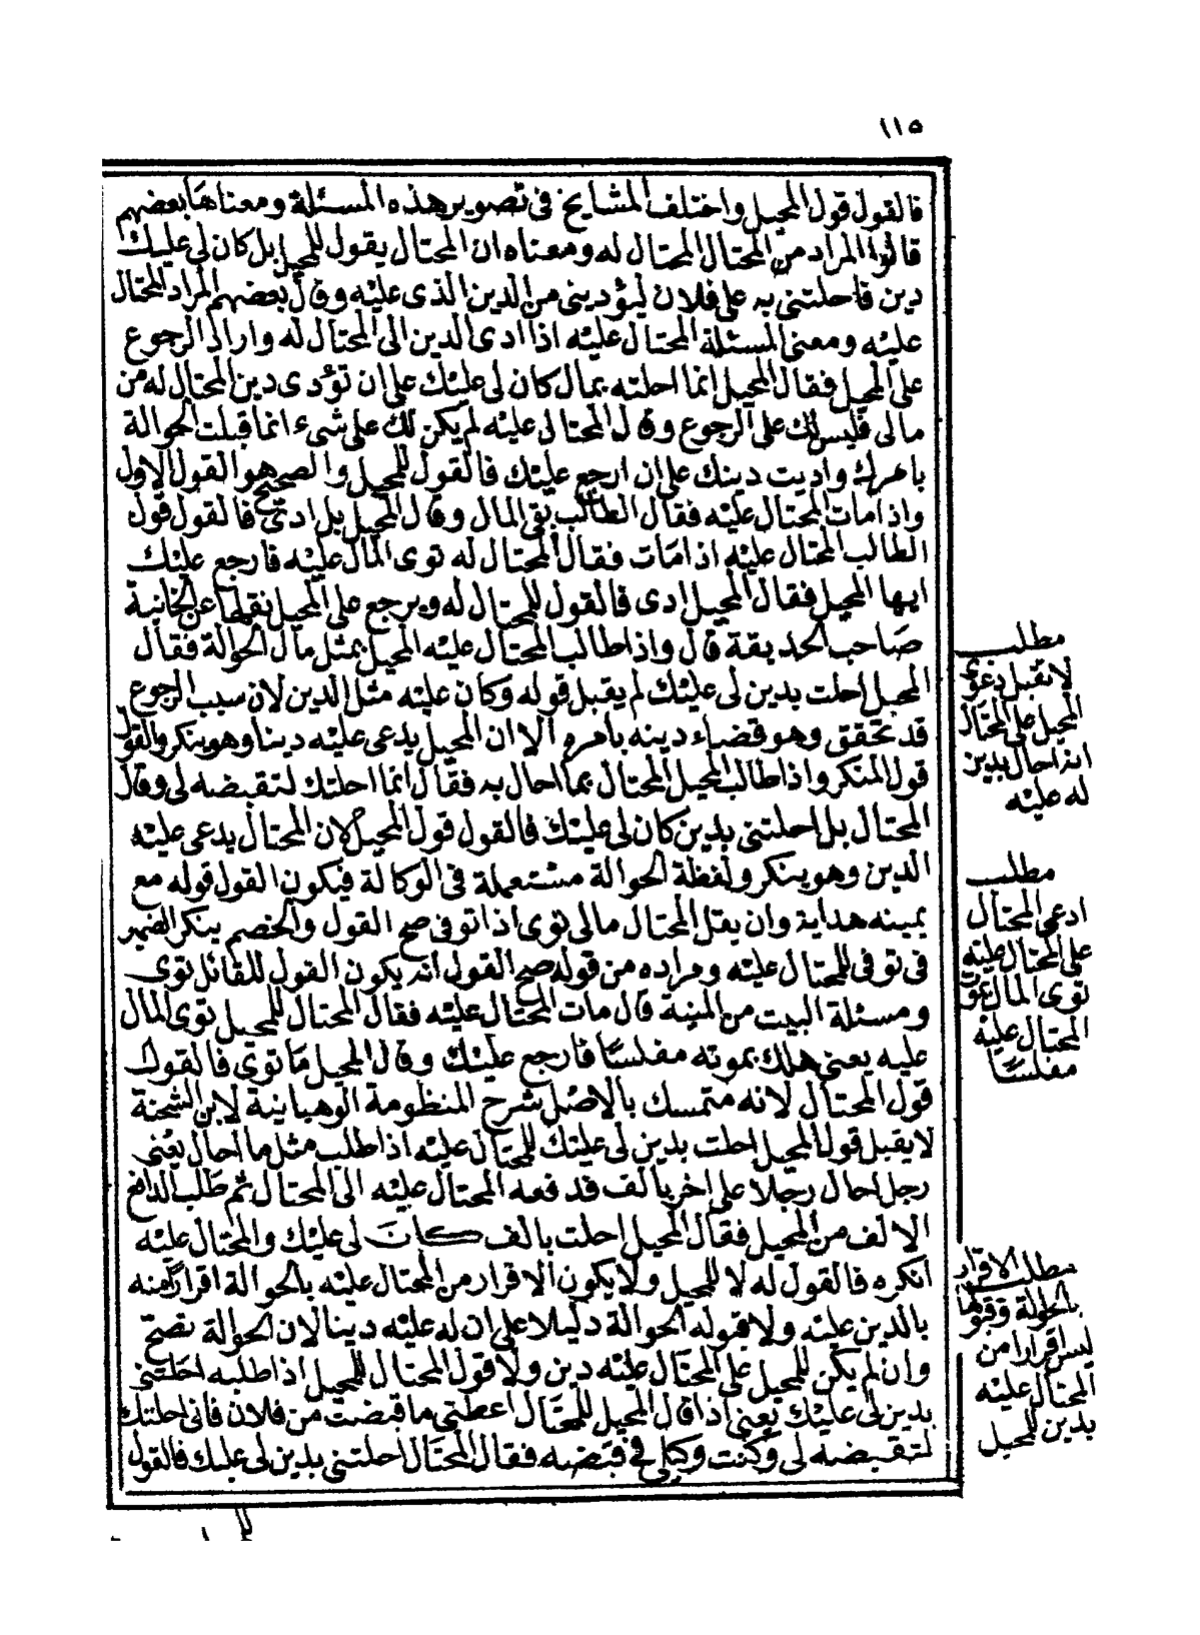 ١١٥
فالقول قول المحيل واختلف المشايخ فى تصوير هذه المسئلة ومعناها بعضهم
قالوا المراد من المحتال المحتال له ومعناه ان المحتال يقول للمحيل بل كان لى عليك
دين فاحلتنى به على فلان ليؤدينى من الدين الذى عليه وقال بعضهم المراد المحتال
عليه ومعنى المسئلة المحتال عليه اذا ادى الدين الى المحتال له واراد الرجوع
على المحيل فقال المحيل انما احلته بمال كان لى عليك على ان تؤدى دين المحتال له من
مالى فليس لك على الرجوع وقال المحتال عليه لم يكن لك على شىء انما قبلت الحوالة
بامرك واديت دينك على ان ارجع عليك فالقول للمحيل والصحيح هو القول الاول
واذا مات المحتال عليه فقال الطالب بقى المال وقال المحيل بل ادى فالقول قول
الطالب المحتال عليه اذا مات فقال المحتال له توى المال عليه فارجع عليك
ايها المحيل فقال المحيل ادى فالقول للمحتال له ويرجع على المحيل نقلها عن الخانية
صاحب الحديقة قال واذا طالب المحتال عليه المحيل بمثل مال الحوالة فقال
المحيل احلت بدين لى عليك لم يقبل قوله وكان عليه مثل الدين لان سبب الرجوع
قد تحقق وهو قضاء دينه بامره الا ان المحيل يدعى عليه دينا وهو ينكر والقول
قول المنكر واذا طالب المحيل المحتال بما احال به فقال انما احلتك لتقبضه لى وقال
المحتال بل احلتنى بدين كان لى عليك فالقول قول المحيل لان المحتال يدعى عليه
الدين وهو ينكر ولفظة الحوالة مستعملة فى الوكالة فيكون القول قوله مع
يمينه هداية وان يقل المحتال مالى توى اذا توفى صح القول والخصم ينكر الضمير
فى توفى للمحتال عليه ومراده من قوله صح القول انه يكون القول للقائل توى
ومسئلة البيت من المنية قال مات المحتال عليه فقال المحتال للمحيل توى المال
عليه يعنى هلك بموته مفلسا فارجع عليك وقال المحيل ما توى فالقول
قول المحتال لانه متمسك بالاصل شرح المنظومة الوهبانية لابن الشحنة
لا يقبل قول المحيل احلت بدين لى عليك للمحتال عليه اذا طلب مثل ما احال يعنى
رجل احال رجلا على اخر بالف فدفعه المحتال عليه الى المحتال ثم طلب الدافع
الالف من المحيل فقال المحيل احلت بالف كان لى عليك والمحتال عليه
انكره فالقول له لا للمحيل ولا يكون الاقرار من المحتال عليه بالحوالة اقرارا منه
بالدين عليه ولا قبوله الحوالة دليلا على ان له عليه دينا لان الحوالة تصح
وان لم يكن للمحيل على المحتال عليه دين ولا قول المحتال للمحيل اذا طلبه احلتنى
بدين لى عليك يعنى اذا قال المحيل للمحتال اعطنى ما قبضت من فلان فانى احلتك
لتقبضه لى وكنت وكيلى فى قبضه فقال المحتال احلتنى بدين لى عليك فالقول
مطلب
لا تقبل دعوى
المحيل على المحتال
انه احال بدين
له عليه
مطلب
ادعى المحتال
على المحتال عليه
توى المال بموت
المحتال عليه
مفلسا
مطلب الاقرار
بالحوالة وقبولها
ليس اقرارا من
المحتال عليه
بدين للمحيل